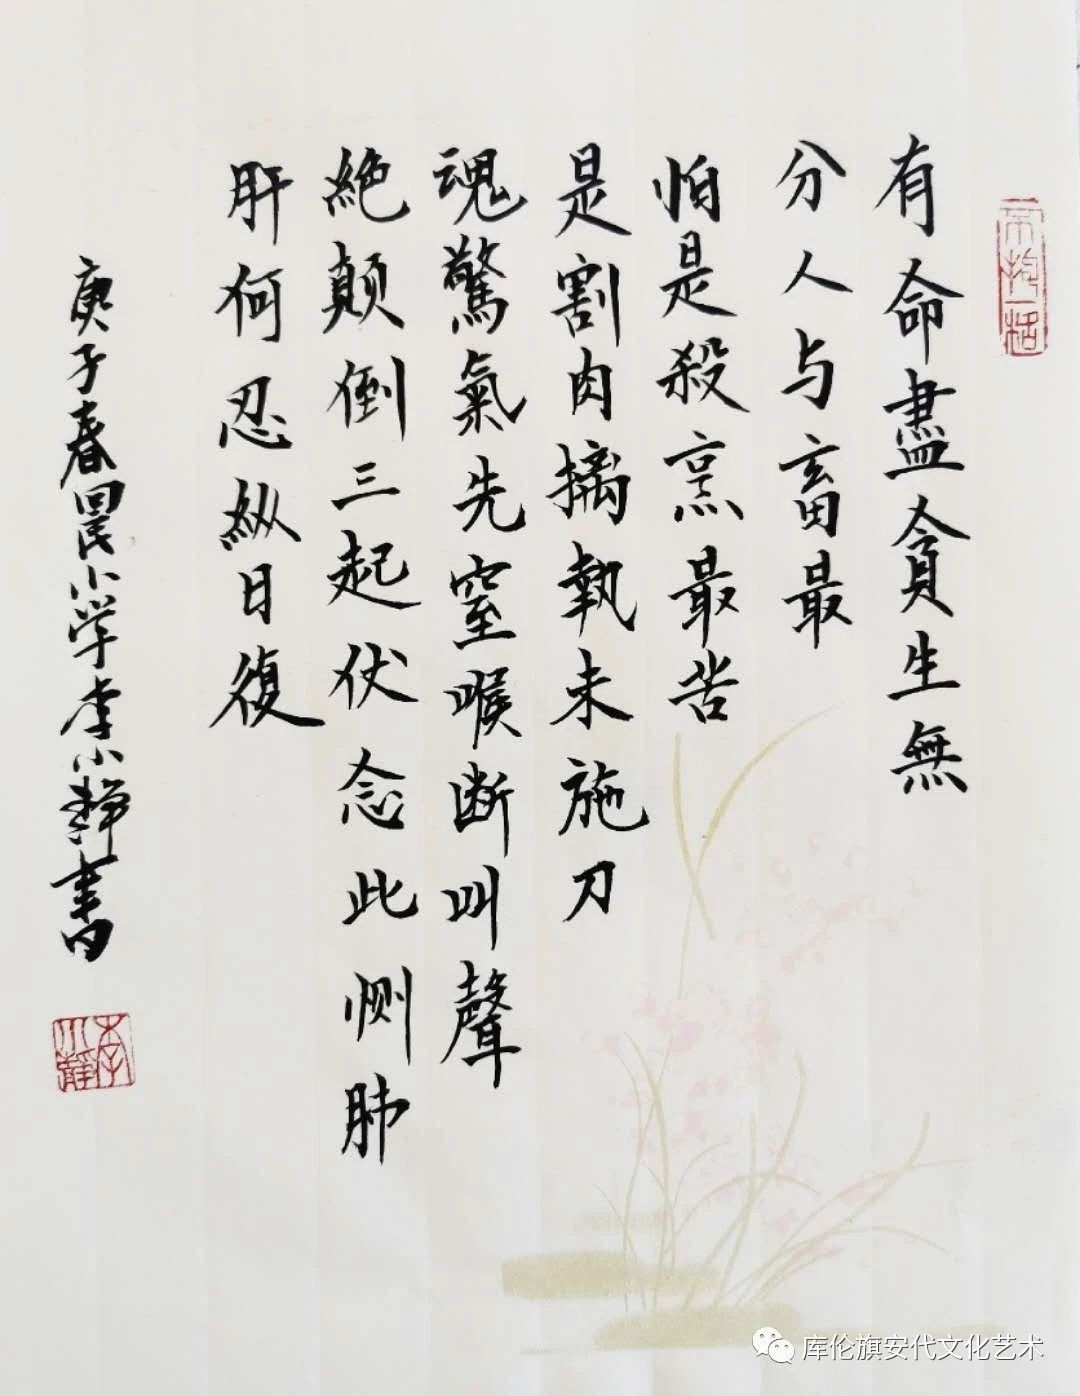 有命盡貪生無
分人与畜最
怕是殺烹最苦
是割肉擒執未施刀
魂驚氣先窒喉断叫聲
絶顛倒三起伏念此惻肺
肝何忍縱日復
庚子春小学李小静書
李小靜
库伦旗安代文化艺术